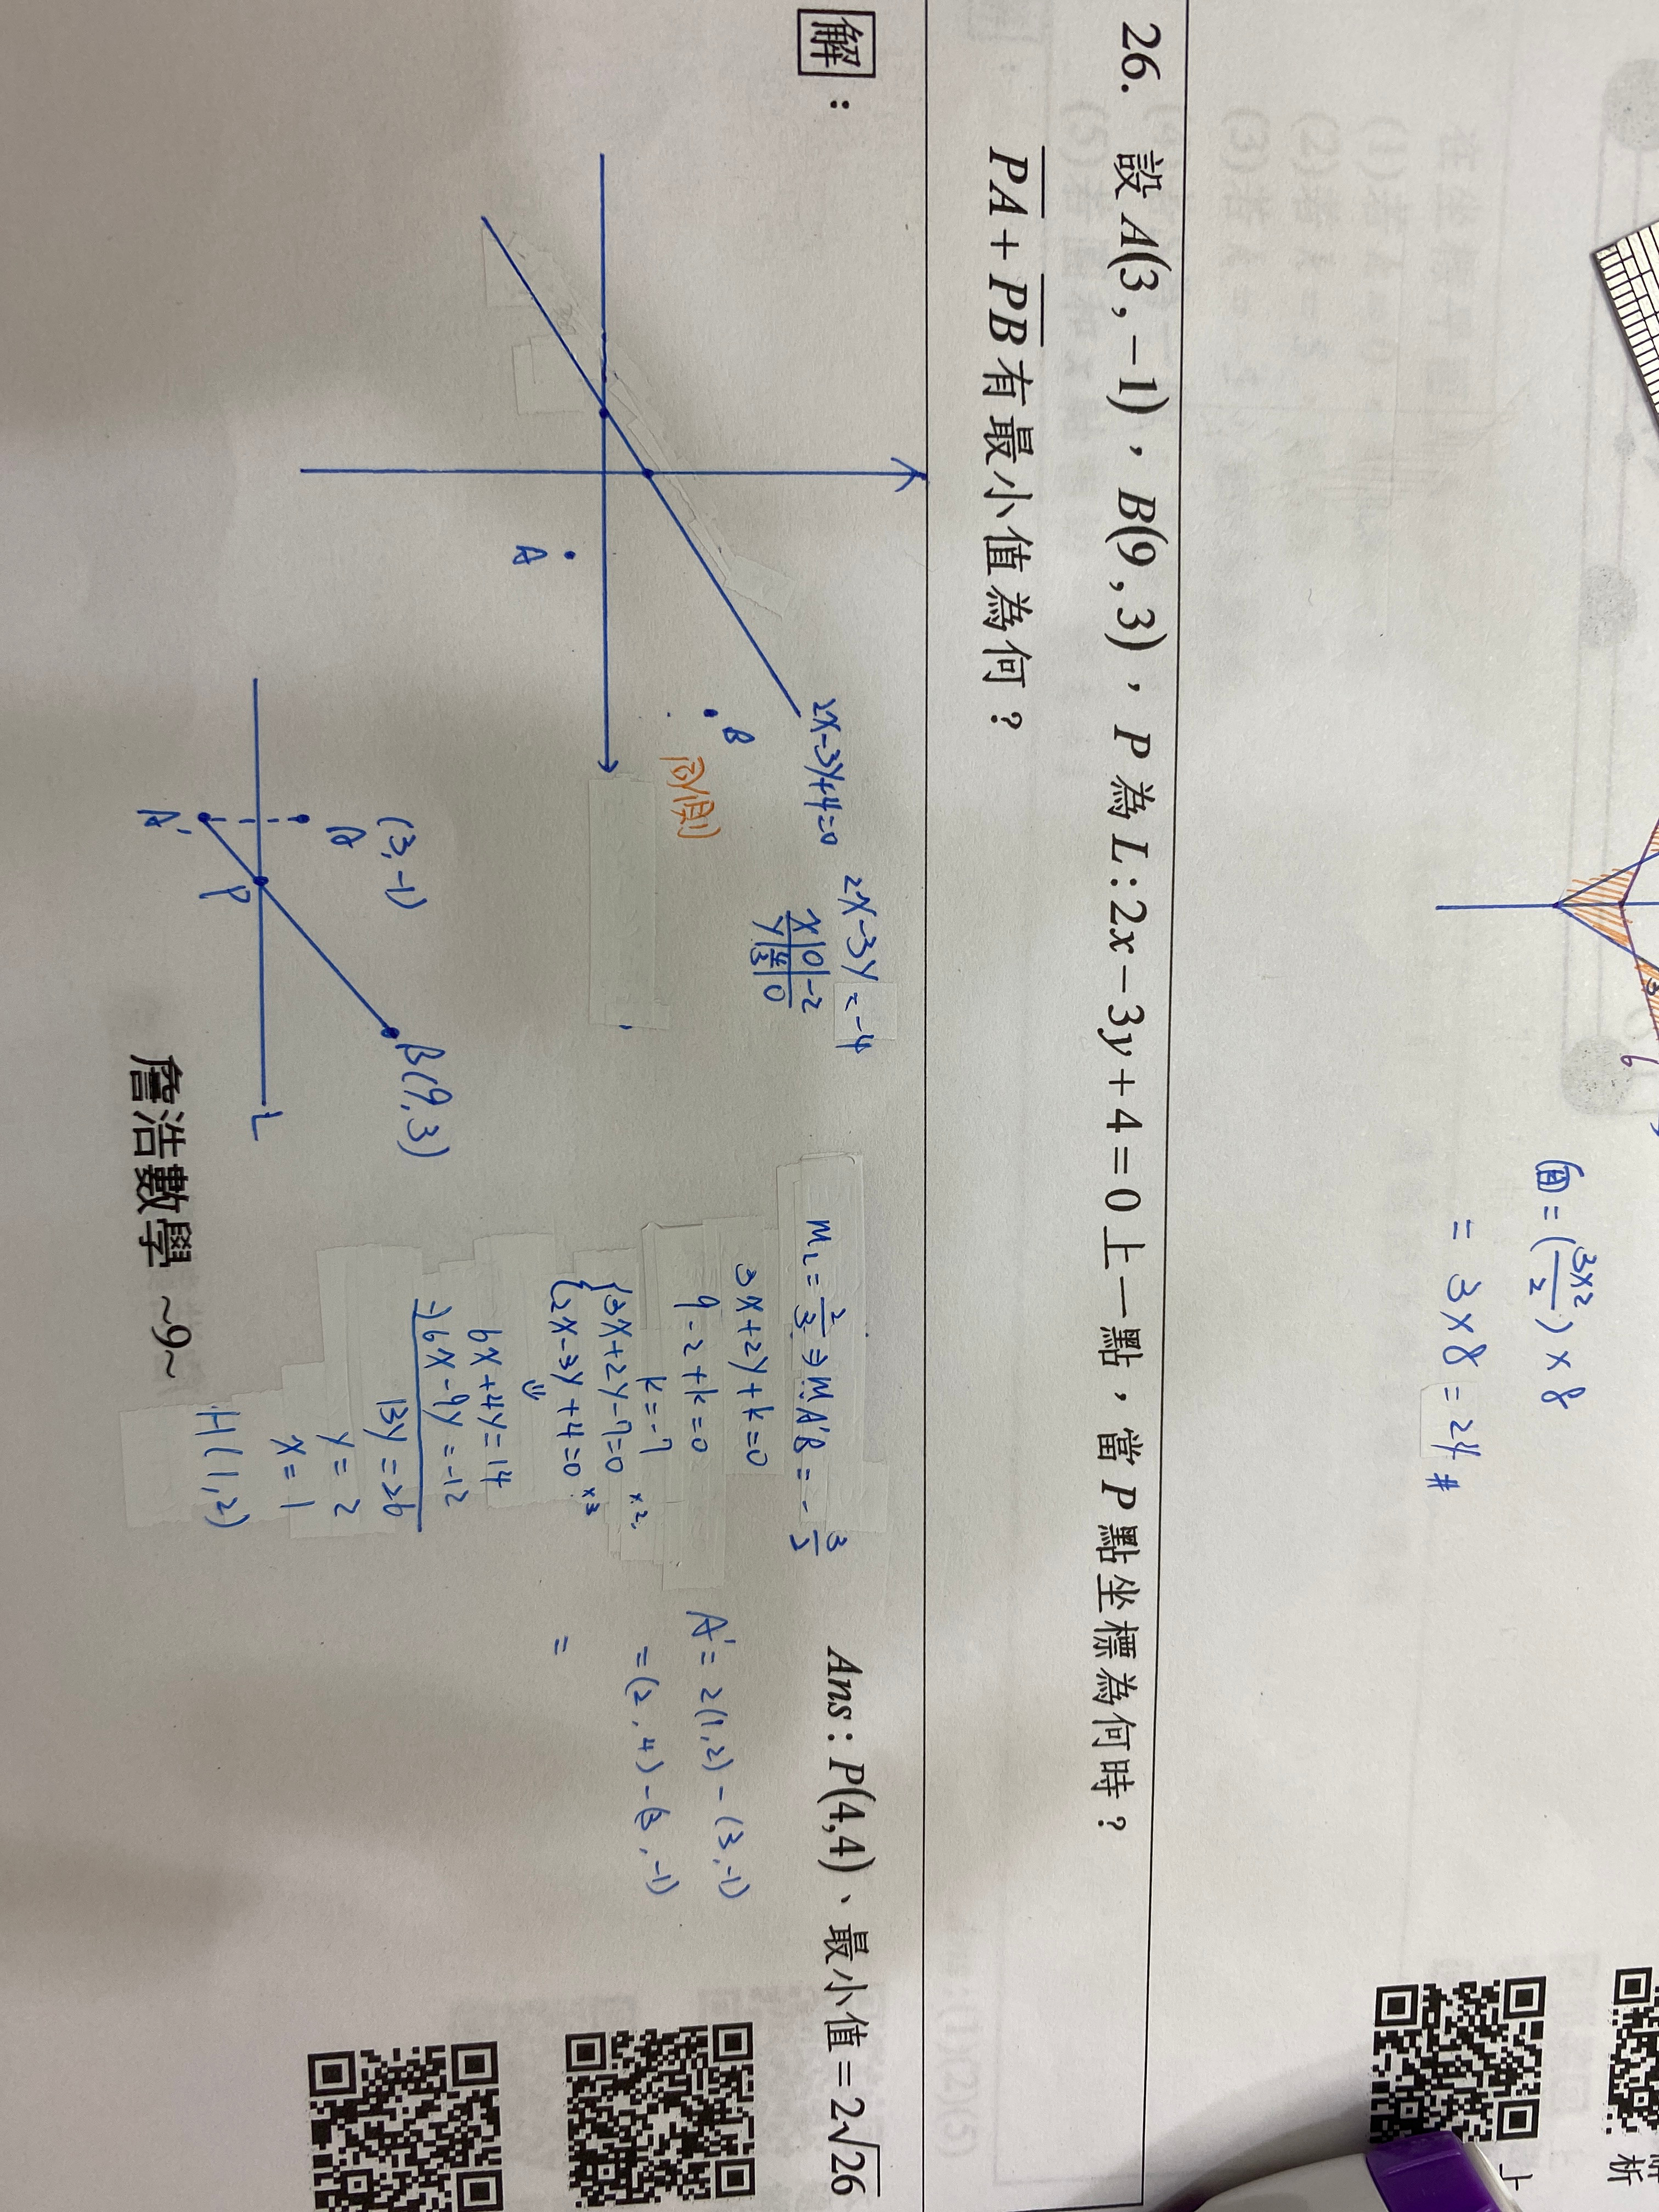 面=(3×2/2)×8
=3×8=24#
3
6
析
上
26. 設 A(3,−1)，B(9,3)，P 為 L:2x−3y+4=0 上一點，當 P 點坐標為何時？
PA+PB 有最小值為何？
解：
Ans：P(4,4)、最小值=2√26
2x-3y+4=0
2x-3y=-4
x 0 -2
y 4/3 0
A
B
同側
(3,-1)
A
B(9,3)
P
A'
L
mL=2/3 ⇒ mA'B=-3/2
3x+2y+k=0
9-2+k=0
k=-7
{3x+2y-7=0 ×2
{2x-3y+4=0 ×3
⇓
6x+4y=14
-) 6x-9y=-12
13y=26
y=2
x=1
H(1,2)
A'=2(1,2)-(3,-1)
=(2,4)-(3,-1)
=
詹浩數學 ~9~